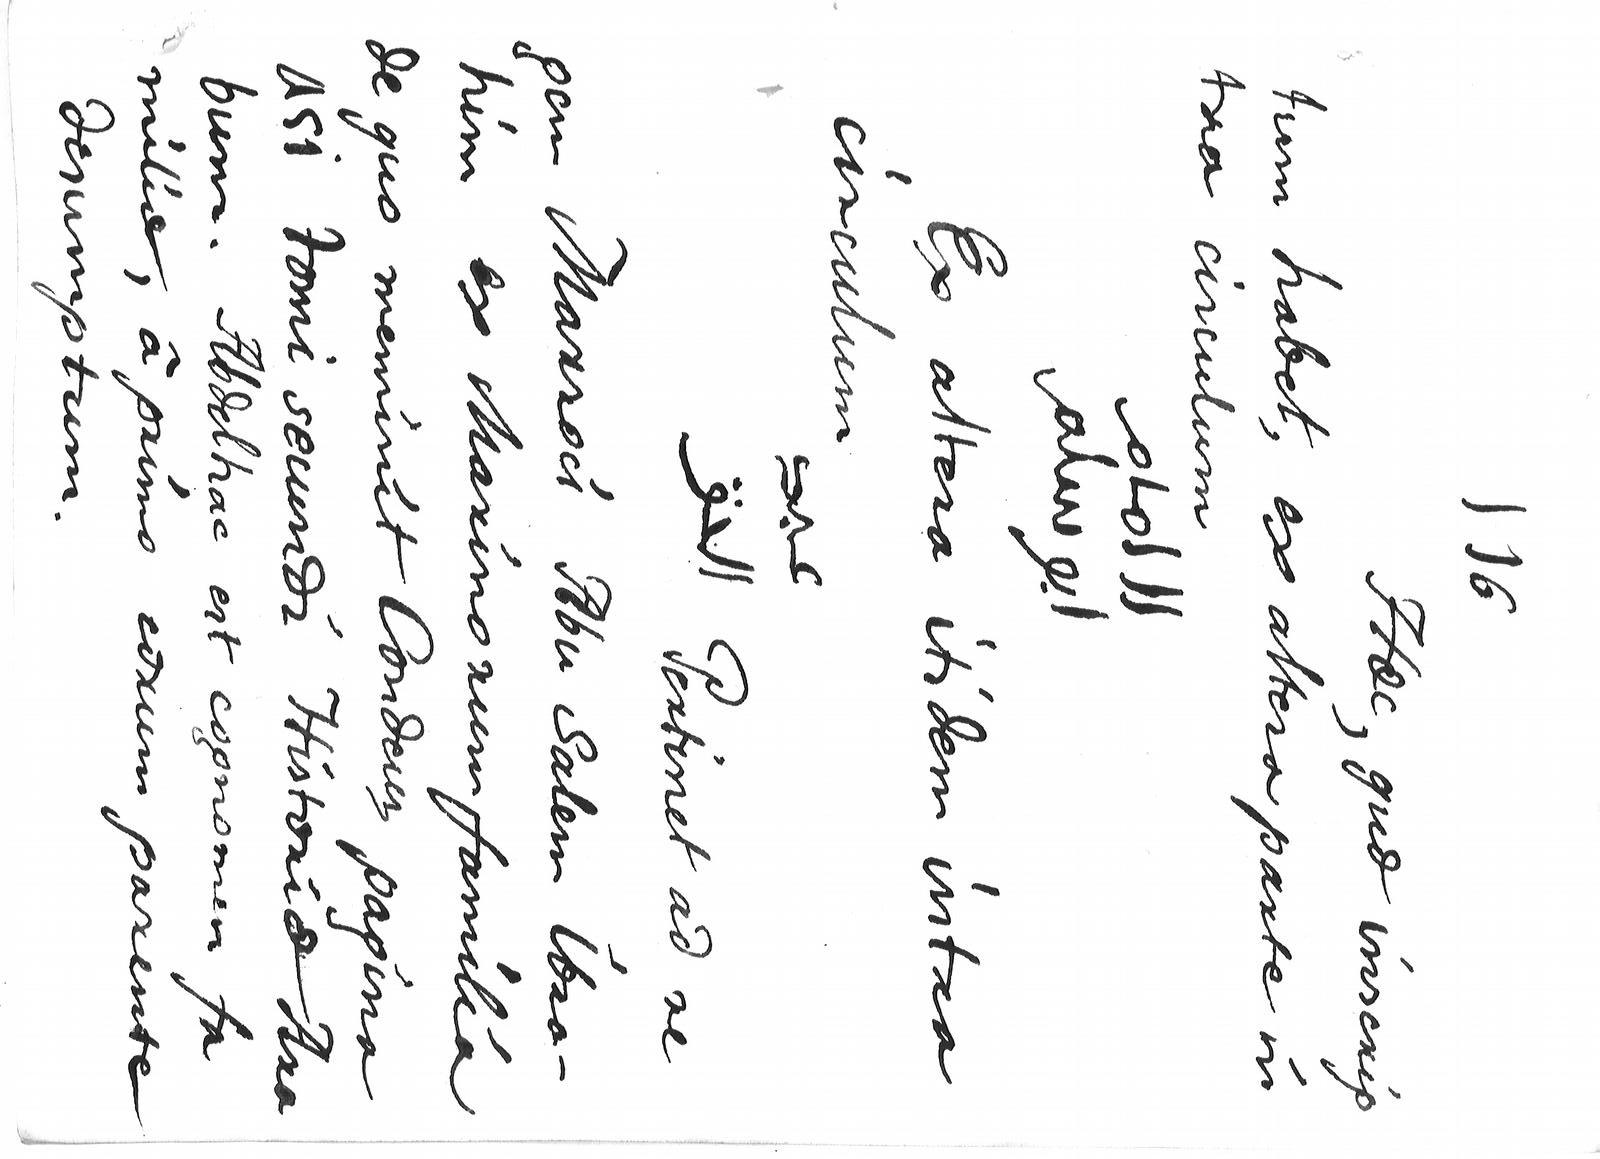 116
Hæc, quæ inscrip
tum habet, ex altera parte in
tra circulum
ابو سالم
Ex altera itidem intra
circulum
عبد
الحق
Pertinet ad re
gem Maxroci Abu Salem Ibra-
him ex Maxinoxum familia
de quo meminit Condeus pagina
151 Tomi secundi Historiæ Ara
bum. Abdelhac est cognomen fa
miliæ, â primo eoxum parente
desumptum.